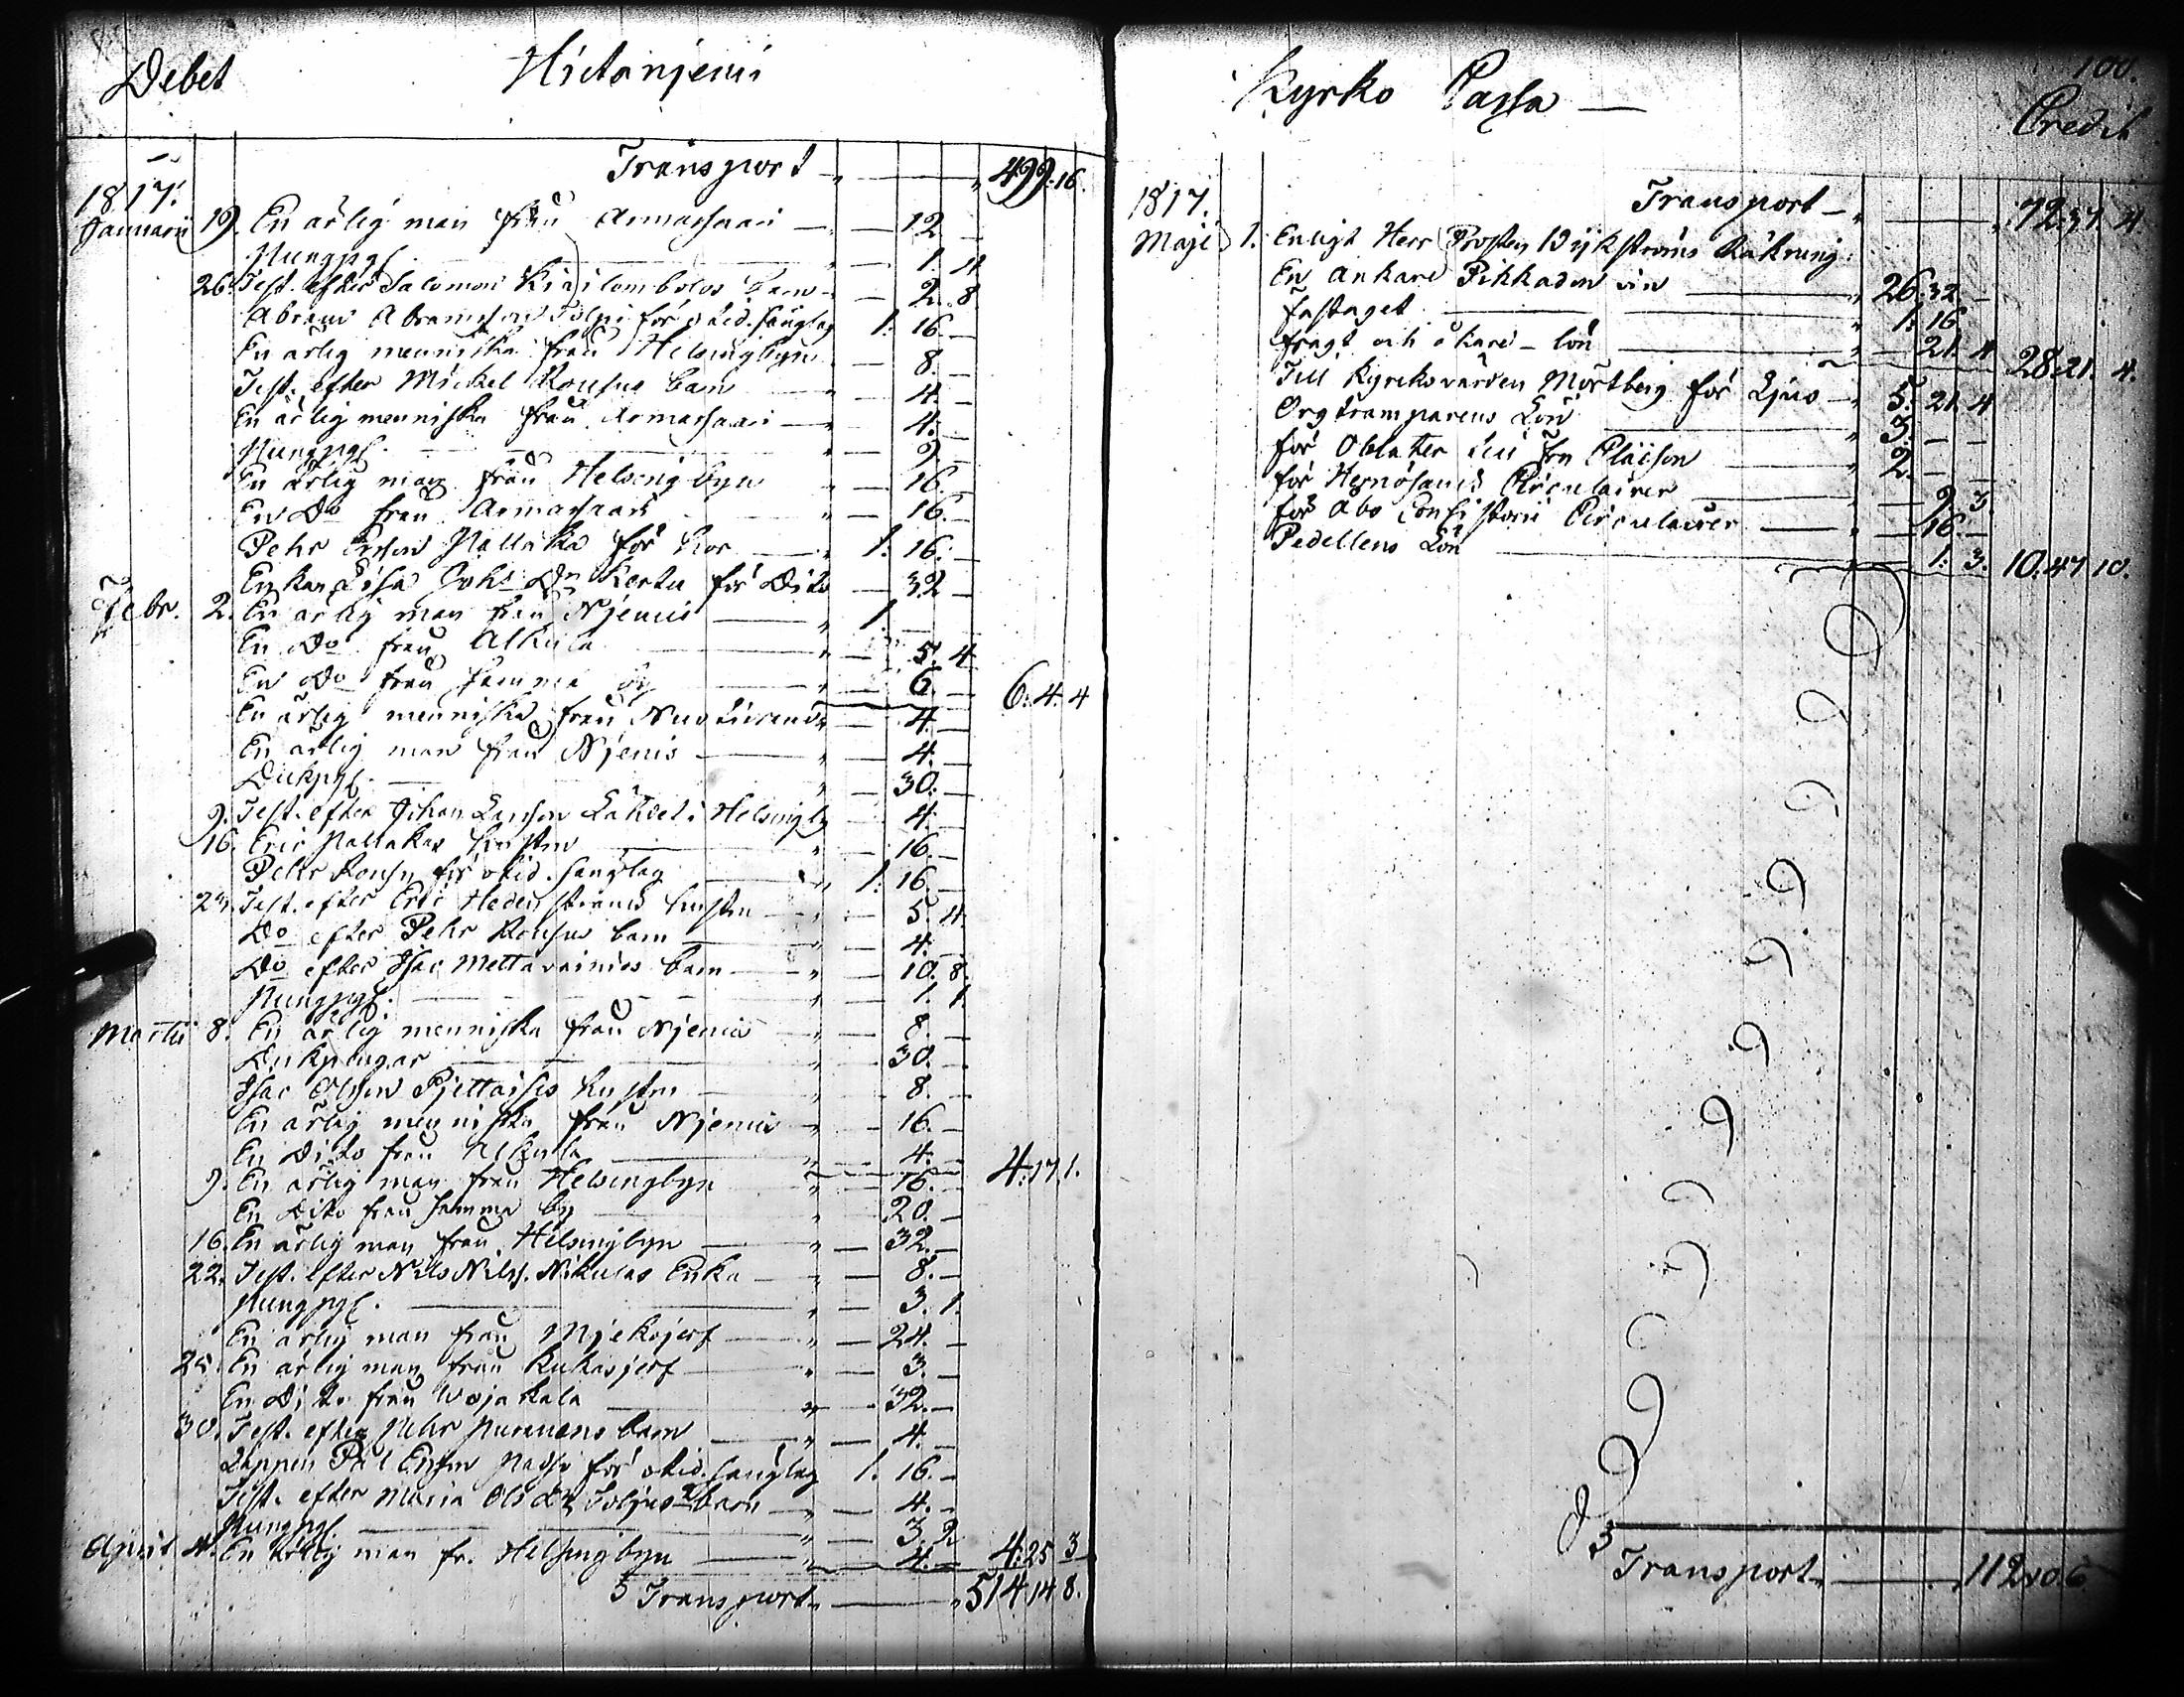 Debet Hietanjemi
Transport 499.16.
1817.
Januarii 19. En ärlig man från Armassaari 12
Pungpgr. 1. 4
26. Test. efter Salomon barn 2. 8
Abram Abramsson för otid. sänglag 1. 16.
En ärlig menniska från Helsingbyn 8.
Test. efter Mickel Rousus barn 4.
En ärlig menniska från Armassaari 4.
Pungpgr. 9.
En ärlig man från Helsingbyn 16.
En Do från Armassaari 16.
Pehr Ersson Pallaka för hor 1. 16.
Enkan Lisa Johs Dr Kertu för Dito 32
Febr. 2. En ärlig man från Njemis 1.
En Do från Alkula 5. 4
En Do från samma by 6. 6. 4. 4
En ärlig menniska från 4.
En ärlig man från Njemis 4.
Dukpgr. 30.
9. Test. efter Johan Larsson Lahdet i Helsingby 4.
16. Eric Pallakas hustru 16.
Pehr Rousu för otid. sänglag 1. 16.
23. Test. efter Eric Hedenströms hustru 5. 4.
Do efter Pehr Rousus barn 4.
Do efter Isac Mettavainios barn 10. 8.
Pungpgr. 1. 1.
Martii 8. En ärlig menniska från Njemis 8.
Dukpengar 30.
Isac Olsson hustru 8.
En ärlig menniska från Njemis 16.
En Dito från Alkula 4. 4. 17. 1.
9. En ärlig man från Helsingbyn 16.
En Dito från samma by 20.
16. En ärlig man från Helsingbyn 32.
22. Test. efter Nils Nilss. Nikulas Enka 8.
Pungpgr. 3. 1.
En ärlig man från Mjekojerf 24.
25. En ärlig man från Kukasjerf 3.
En Dito från Wojakala 32.
30. Test. efter Pehr barn 4.
Lappen Pål Ersson för otid. sänglag 1. 16.
Test. efter Maria Ols Dr barn 4.
Pungpgr. 3. 2
April 4. En ärlig man fr. Helsingbyn 4. 4. 25 3
Transport 514. 14. 8.
Kyrko Cassa 100.
Credit
1817. Transport 72. 37. 4
Maji 1. Enligt Herr Prosten Wijkströms Räkning:
En Ankare Pikkadon vin 26. 32.
fastaget 1. 16.
fragt och åkare-lön 21. 4 28. 21. 4.
Till Kyrkovärden Mörtberg för Ljus 5. 21. 4
Orgtramparens Lön 3.
för Oblater till Fru Claeson 2.
för Hernösands Circulairer 9. 3.
för Åbo Consistorii Circulairer 16.
Pedellens Lön 1. 3. 10. 47 10.
Transport 112. 10. 6.